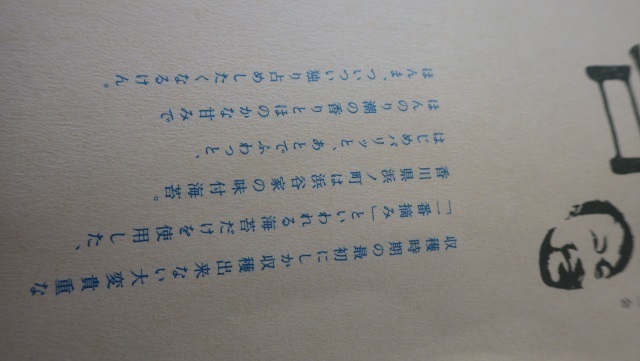 収穫時期の最初にしか収穫出来ない大変貴重な
「一番摘み」といわれる海苔だけを使用した、
香川県浜ノ町は浜谷家の味付海苔。
はじめパリッと、あとでふわっと、
ほんのり潮の香りとほのかな甘みで
ほんま、ついつい独り占めしたくなるけん。